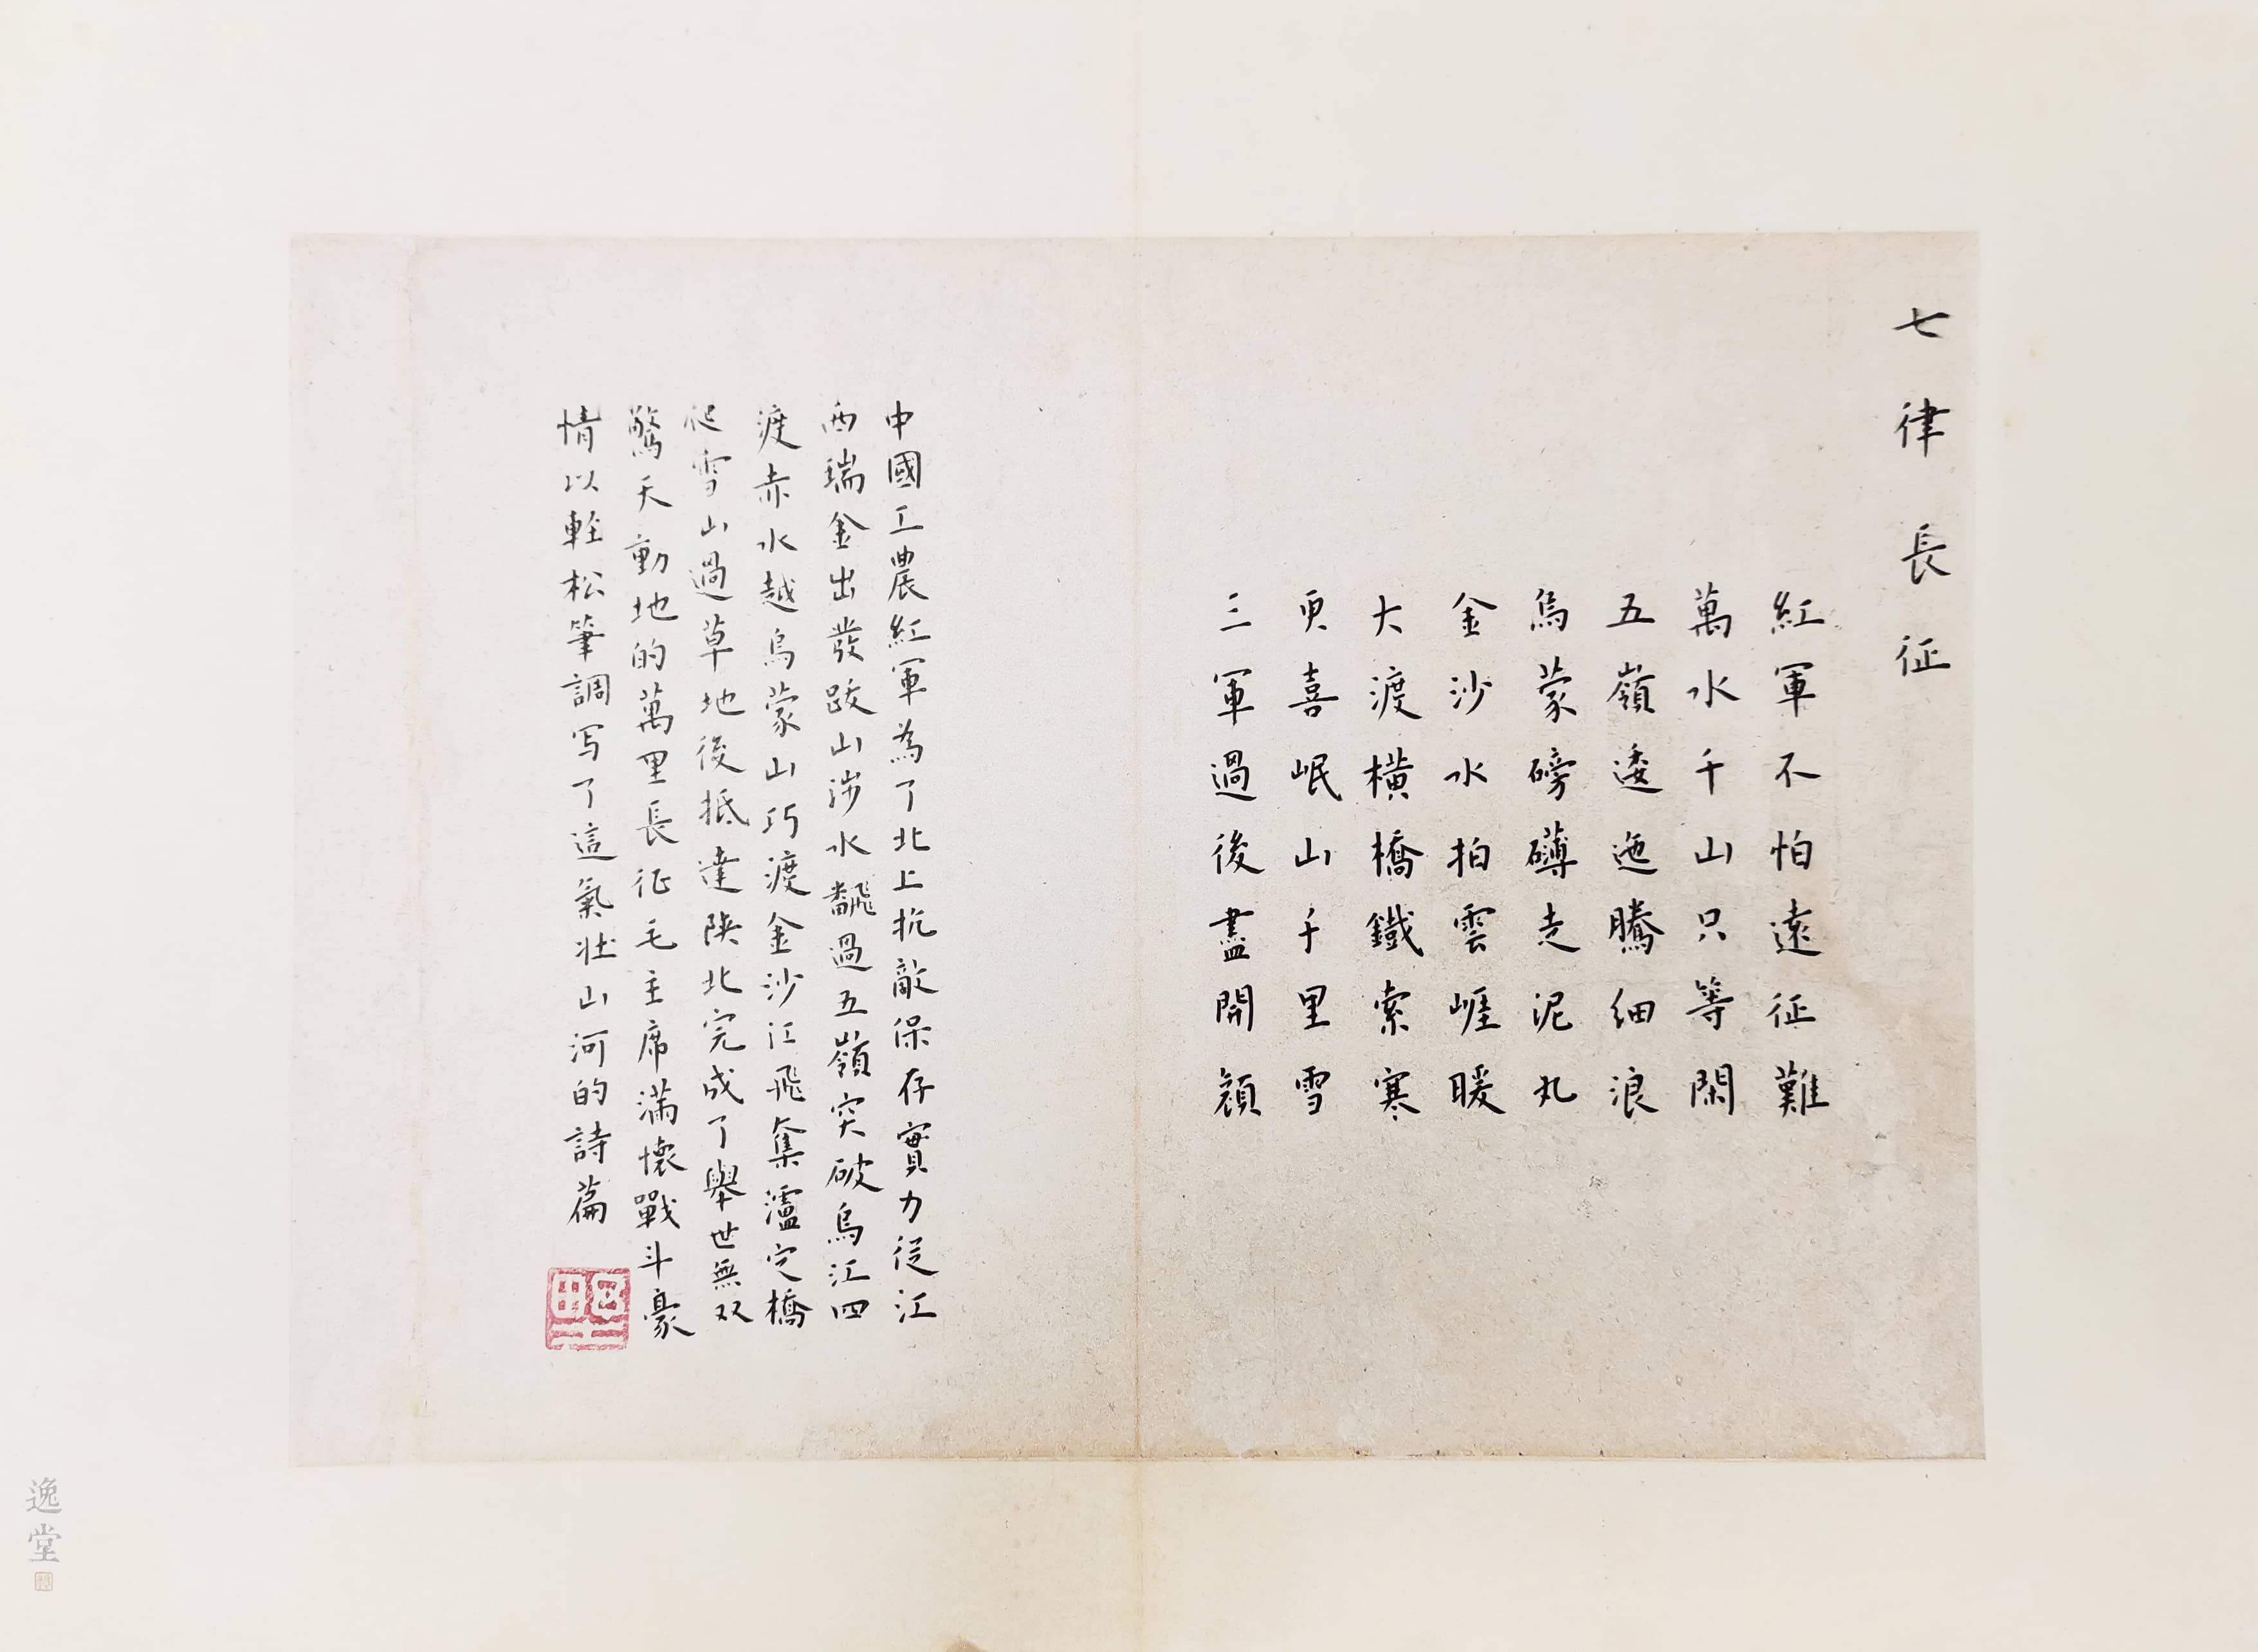 七律長征
紅軍不怕遠征難
萬水千山只等閑
五嶺逶迤騰細浪
烏蒙磅礴走泥丸
金沙水拍雲崕暖
大渡橫橋鐵索寒
更喜岷山千里雪
三軍過後盡開顏
中國工農紅軍為了北上抗敵保存實力從江
西瑞金出發跋山涉水飜過五嶺突破烏江四
渡赤水越烏蒙山巧渡金沙江飛奪瀘定橋
爬雪山過草地後抵達陝北完成了舉世無双
驚天動地的萬里長征毛主席滿懷戰斗豪
情以輕松筆調写了這氣壯山河的詩篇
逸堂